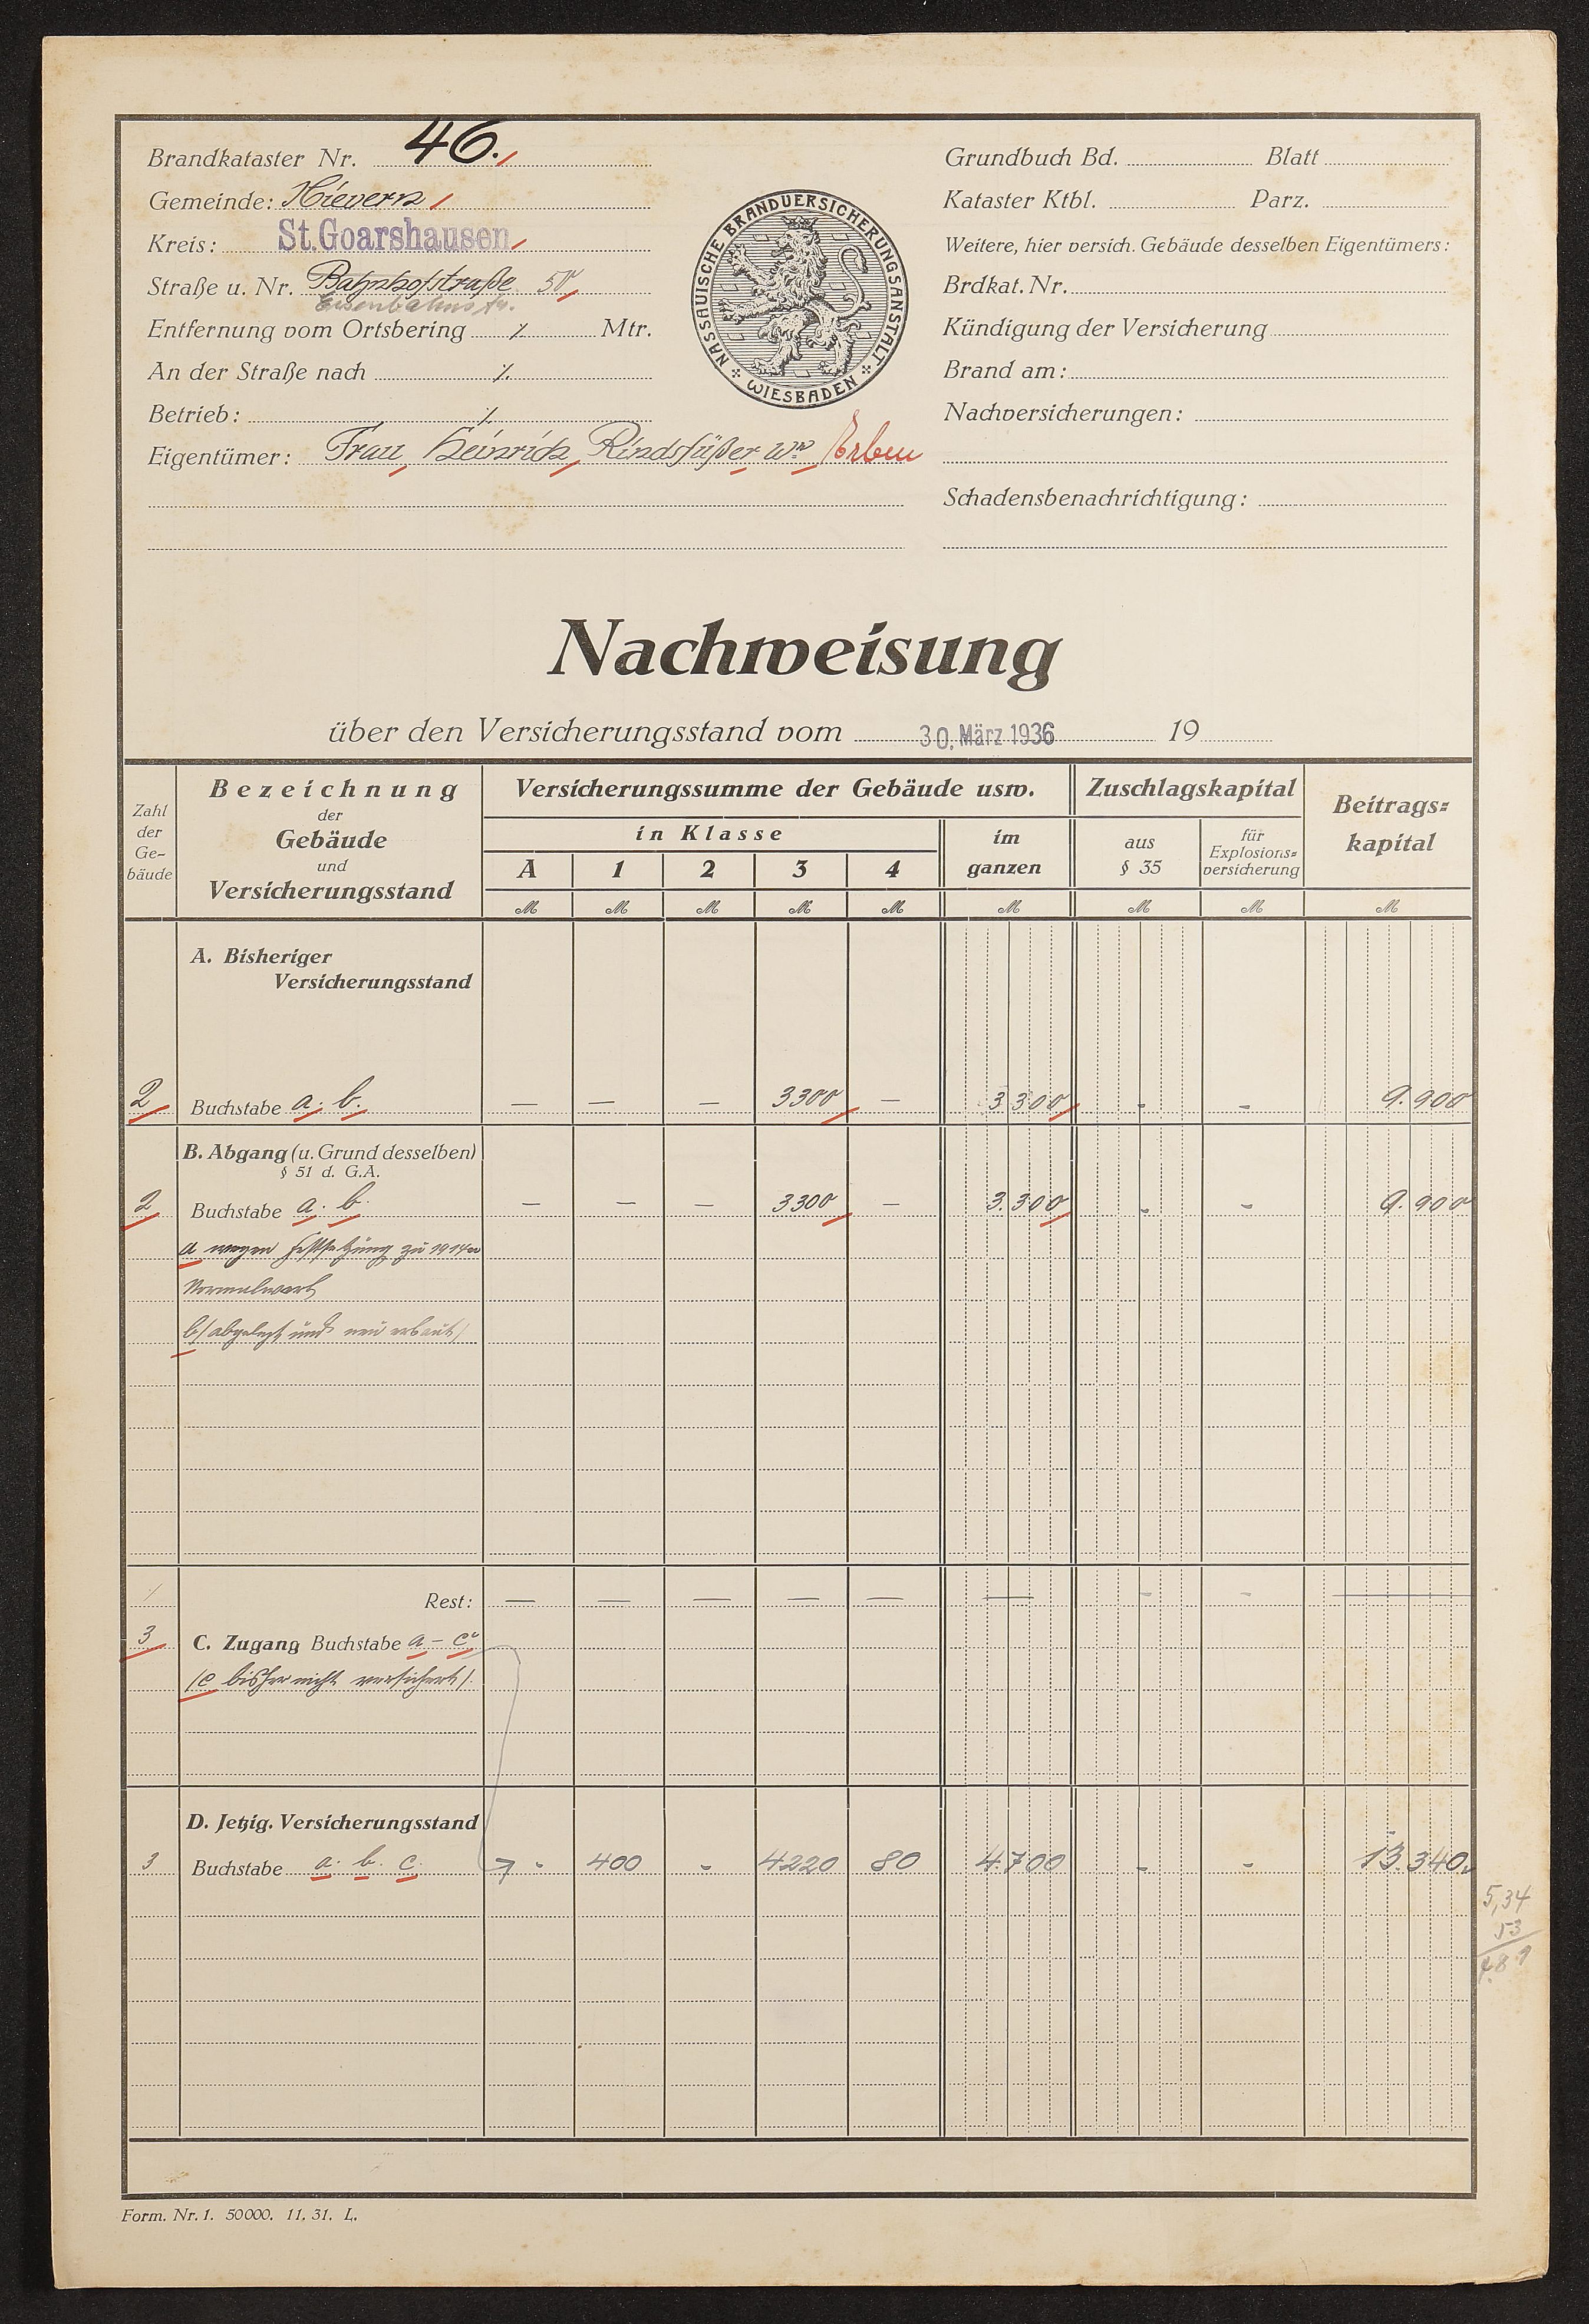 Brandkataster Nr. 46.
Gemeinde: Nievern
Kreis: St. Goarshausen
Straße u. Nr. Bahnhofstraße 50
Eisenbahnstr.
Entfernung vom Ortsbering ./. Mtr.
An der Straße nach ./.
Betrieb: ./.
Eigentümer: Frau Heinrich Rindsfüßer Wwe Erben
NASSAUISCHE BRANDVERSICHERUNGSANSTALT
WIESBADEN
Grundbuch Bd. Blatt
Kataster Ktbl. Parz.
Weitere, hier versich. Gebäude desselben Eigentümers:
Brdkat. Nr.
Kündigung der Versicherung
Brand am:
Nachversicherungen:
Schadensbenachrichtigung:
Nachweisung
über den Versicherungsstand vom 30. März 1936 19
Zahl der Ge-bäude
Bezeichnung der Gebäude und Versicherungsstand
Versicherungssumme der Gebäude usw.
in Klasse
A 1 2 3 4
im ganzen
Zuschlagskapital
aus § 35
für Explosions-versicherung
Beitrags-kapital
M M M M M M M M M
A. Bisheriger
Versicherungsstand
2 Buchstabe a. b. — — — 3300 — 3.300 - - 9.900
B. Abgang (u. Grund desselben)
§ 51 d. G.A.
2 Buchstabe a. b. — — — 3300 — 3.300 - - 9.900
a wegen Festsetzung zu 1914er
Normalwert
b/ abgelegt und neu erbaut/
/ Rest: — — — — — — - - —
3 C. Zugang Buchstabe a - c
/c bisher nicht versichert/.
D. Jetzig. Versicherungsstand
3 Buchstabe a. b. c. - 400 - 4220 80 4.700 - - 13.340
5,34
53
Form. Nr. 1. 50000. 11. 31. L.